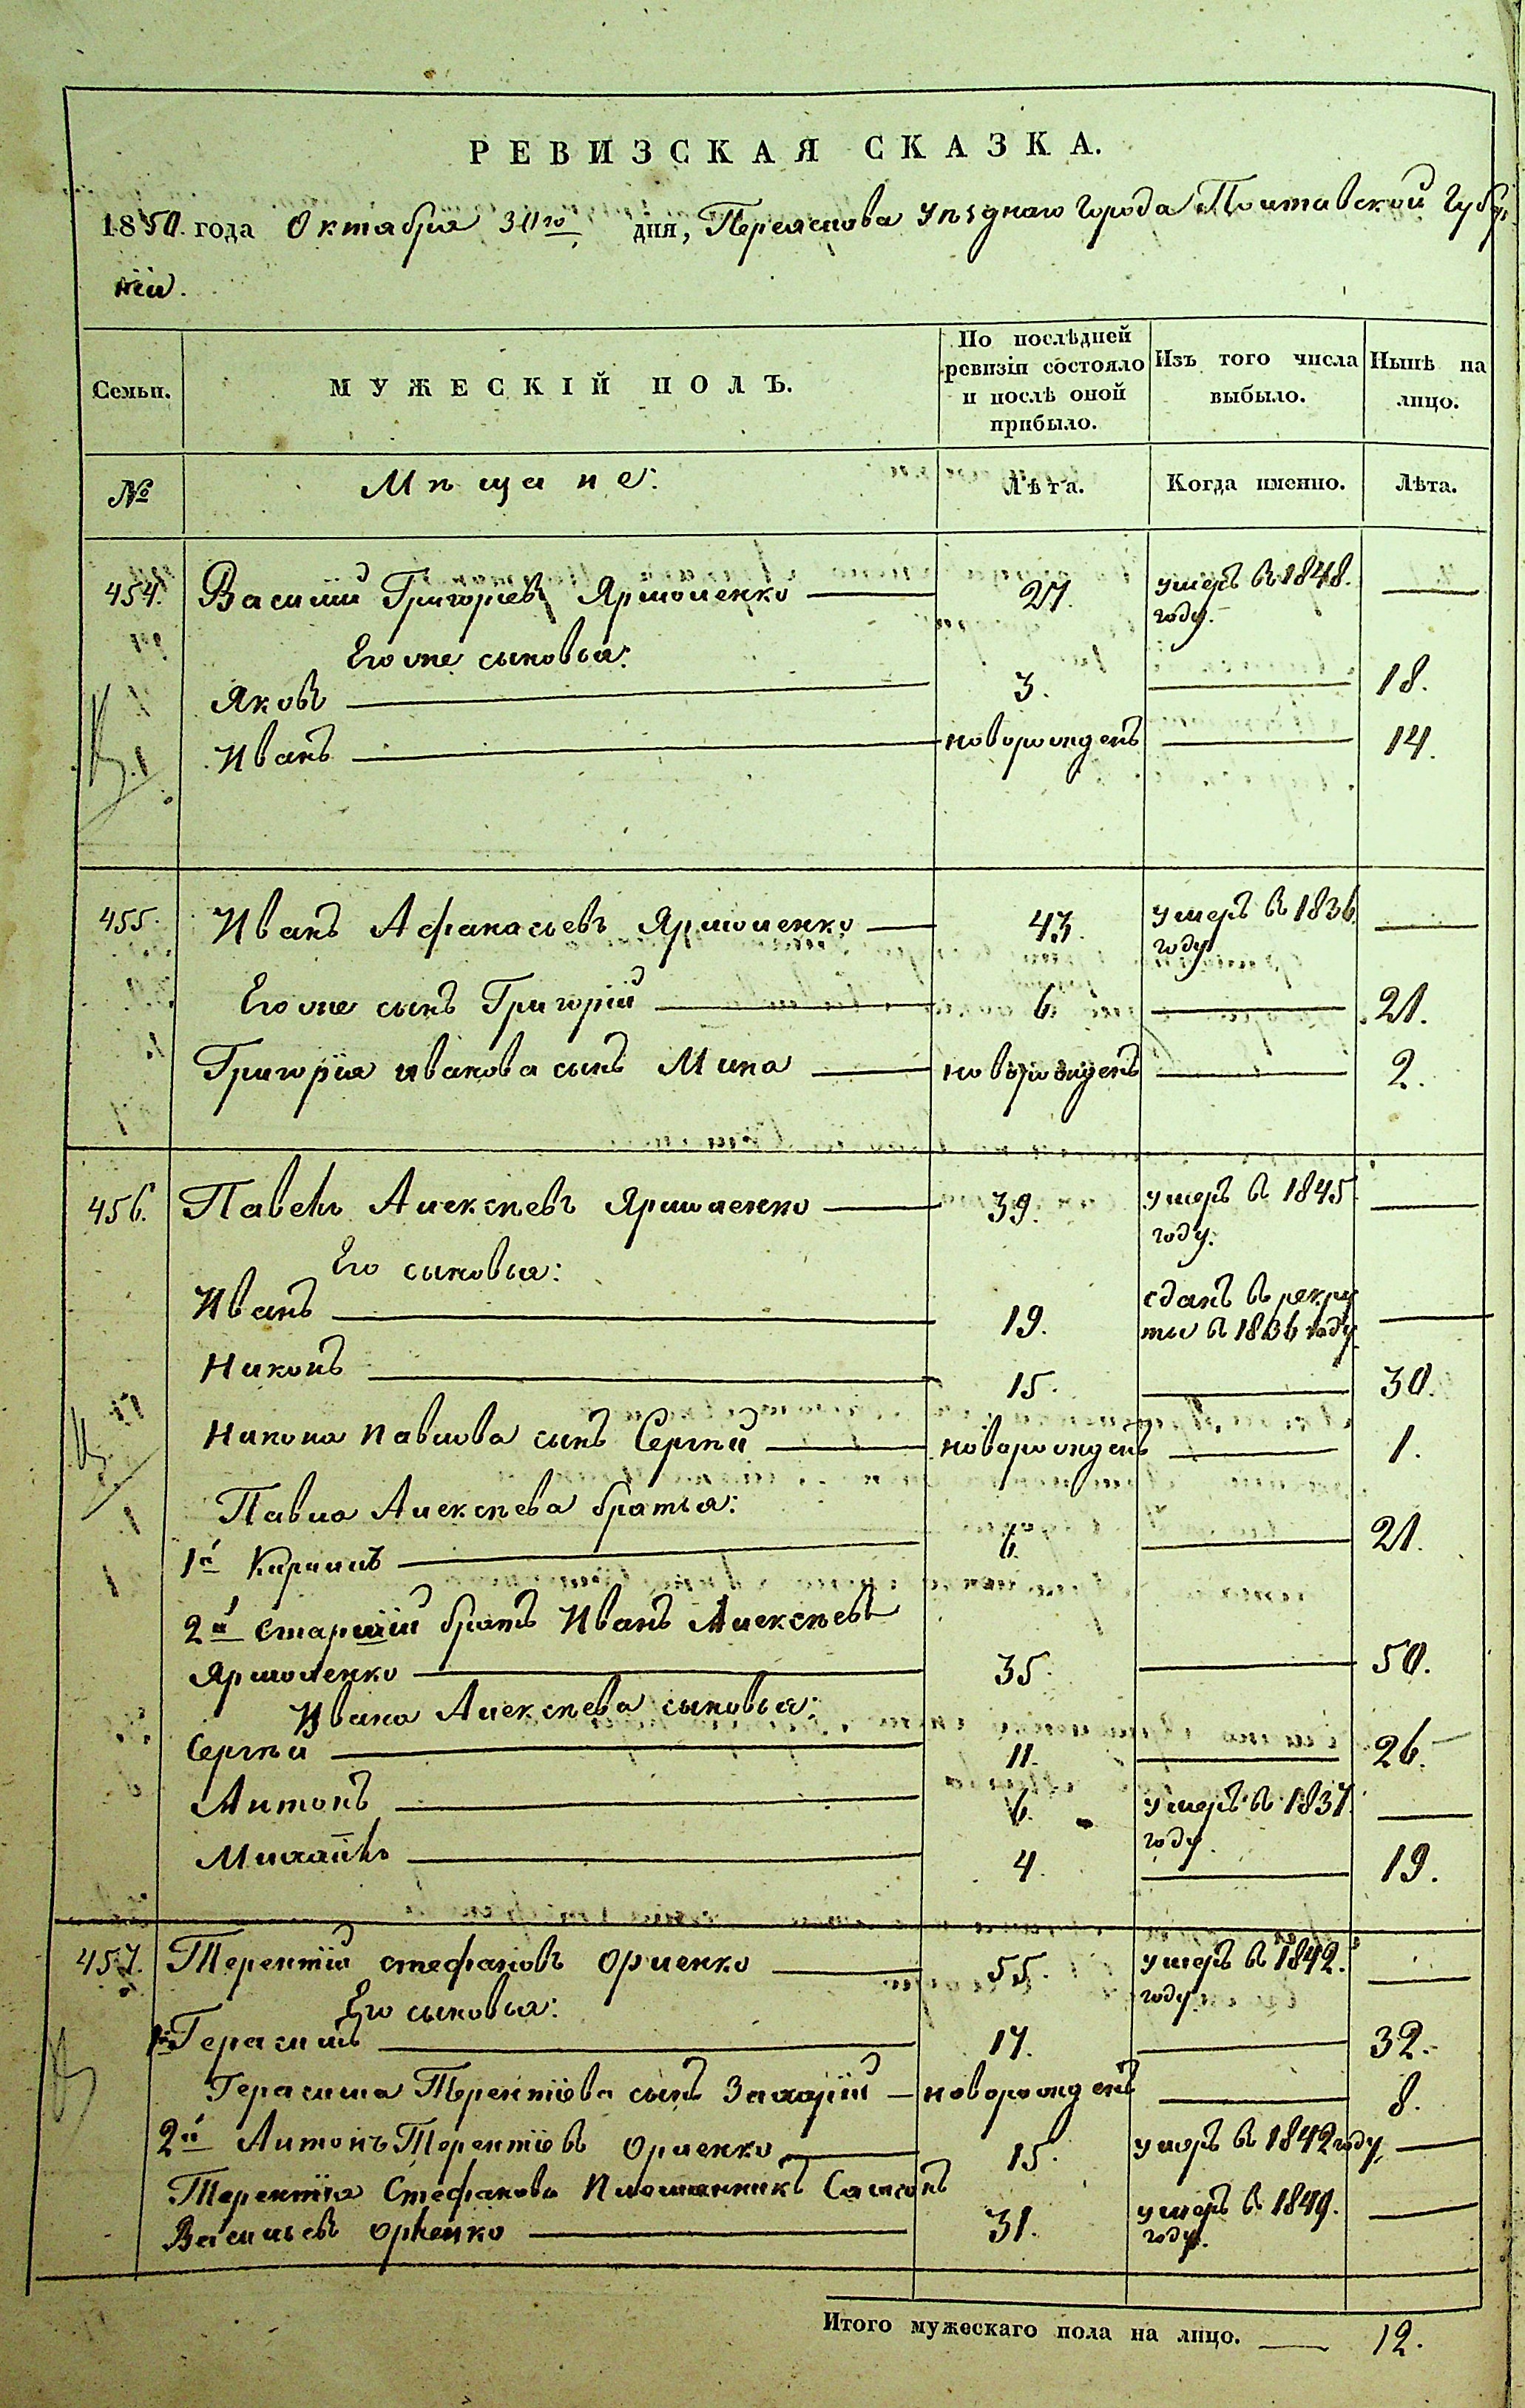 РЕВИЗСКАЯ СКАЗКА.
1850. года Октября 30го дня, Переяслова уѣзднаго города Полтавской Губер-
ніи.
Семьи. МУЖЕСКІЙ ПОЛЪ. По послѣдней ревизіи состояло и послѣ оной прибыло. Изъ того числа выбыло. Нынѣ на лицо.
№ Мѣщане: Лѣта. Когда именно. Лѣта.
454. Василій Григорьевъ Ярмоленко — 27. умеръ въ 1848. году. —
Его же сыновья:
Яковъ — 3. — 18.
Иванъ — новорожденъ — 14.
455. Иванъ Афанасьевъ Ярмоленко — 43. умеръ въ 1836 году —
Его же сынъ Григорій — 6. — 21.
Григорія Иванова сынъ Мина — новорожденъ — 2.
456. Павелъ Алексѣевъ Ярмоленко — 39. умеръ въ 1845 году. —
Его сыновья:
Иванъ — 19. сданъ въ рекруты въ 1836 году. —
Никонъ — 15. — 30.
Никона Павлова сынъ Сергѣй — новорожденъ — 1.
Павла Алексѣева братья:
1й Кирилъ — 6. — 21.
2й старшій братъ Иванъ Алексѣевъ
Ярмоленко — 35. — 50.
Ивана Алексѣева сыновья:
Сергѣй — 11. — 26.
Антонъ — 6. умеръ въ 1837. году. —
Михайлъ — 4. — 19.
457. Терентій Стефановъ Орленко — 55. умеръ въ 1842. году. —
Его сыновья:
1й Герасимъ — 17. — 32.
Герасима Терентіева сынъ Захарій — новорожденъ — 8.
2й Антонъ Терентіевъ Орленко — 15. умеръ въ 1842 году. —
Терентія Стефанова племянникъ Самсонъ
Васильевъ Орленко — 31. умеръ въ 1849. году. —
Итого мужескаго пола на лицо. — 12.